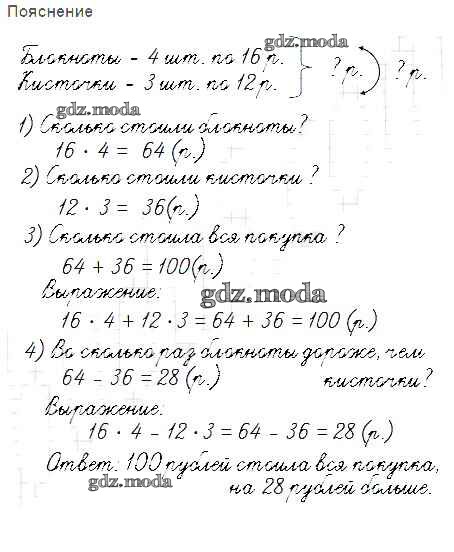 Пояснение
gdz.moda
Блокноты - 4 шт. по 16 р. } ? р. ? р.
Кисточки - 3 шт. по 12 р.
gdz.moda
1) Сколько стоили блокноты?
16 · 4 = 64 (р.)
2) Сколько стоили кисточки ?
12 · 3 = 36(р.)
3) Сколько стоила вся покупка ?
64 + 36 = 100(р.)
Выражение:
gdz.moda
16 · 4 + 12 · 3 = 64 + 36 = 100 (р.)
4) Во сколько раз блокноты дороже, чем
64 - 36 = 28 (р.) кисточки?
Выражение:
16 · 4 - 12 · 3 = 64 - 36 = 28 (р.)
Ответ: 100 рублей стоила вся покупка,
gdz.moda
на 28 рублей больше.